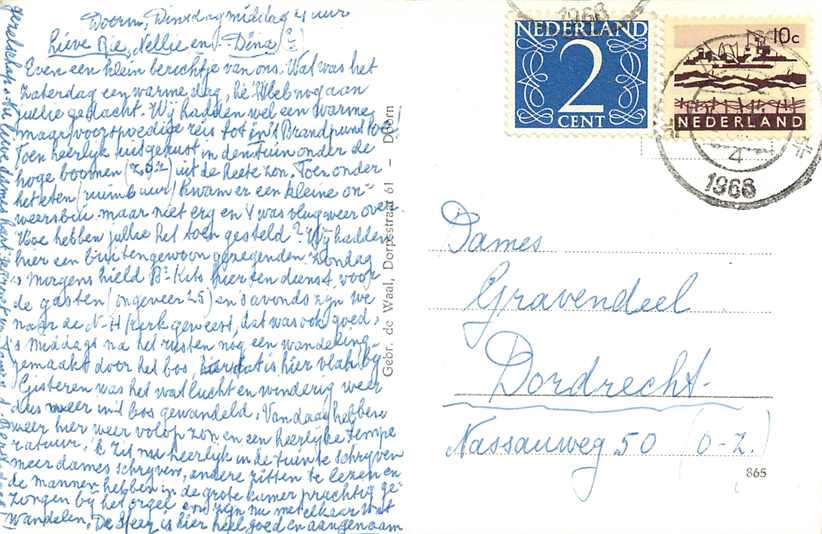 Doorn, Dinsdagmiddag 4 uur
Lieve Rie, Nellie en Dina
Even een klein berichtje van ons. Wat was het
Zaterdag een warme dag, heb nog aan
jullie gedacht. Wij hadden wel een warme
maar voorspoedige reis tot in 't Brandpunt toe!
Toen heerlijk uitgerust in den tuin onder de
hoge boomen (z.o.z.) uit de heete zon. Toen onder
het eten (ruim 6 uur) kwam er een kleine on-
weersbui maar niet erg en 't was vlug weer over
Hoe hebben jullie het toen gesteld? Wij hadden
hier een buitengewoon gezegenden Zondag
's morgens hield Br. Kits hier ten dienst voor
de gasten (ongeveer 25) en 's avonds zijn we
naar de N-H Kerk geweest, dat was ook goed,
's middags na het rusten nog een wandeling
gemaakt door het bos, dat is hier vlak bij
Gisteren was het wat lucht en winderig weer
dus weer in 't bos gewandeld. Vandaag hebben
weer hier weer volop zon en een heerlijke tempe
ratuur. 'k Zit nu heerlijk in de tuin te schrijven
meer dames schrijven, andere zitten te lezen en
de mannen hebben in de grote kamer prachtig ge-
zongen bij het orgel en zijn nu met elkaar wat
wandelen. De sfeer is hier heel goed en aangenaam
gezelschap. lieve dames hart
Gebr. de Waal, Dorpsstraat 61 – Doorn
1968
NEDERLAND
2
CENT
10c
NEDERLAND
4
1968
Dames
Gravendeel
Dordrecht
Nassauweg 50 (o-z.)
865